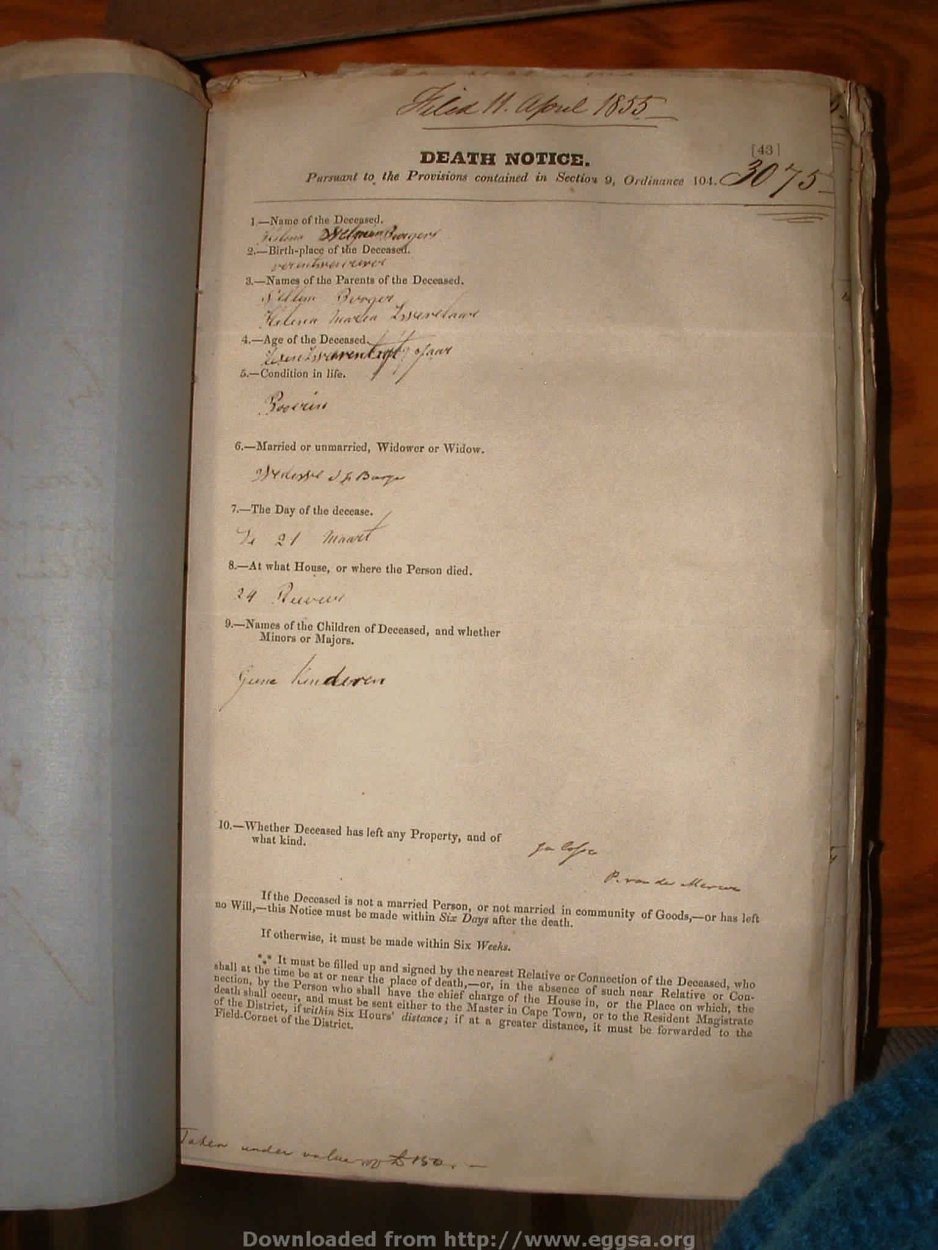 Filed 11. April 1855
[43]
DEATH NOTICE.
3075
Pursuant to the Provisions contained in Section 9, Ordinance 104.
1.—Name of the Deceased.
2.—Birth-place of the Deceased.
3.—Names of the Parents of the Deceased.
Willem Burger
Helena Maria
4.—Age of the Deceased.
Jaar
5.—Condition in life.
Boerin
6.—Married or unmarried, Widower or Widow.
Burger
7.—The Day of the decease.
21 Maart
8.—At what House, or where the Person died.
24
9.—Names of the Children of Deceased, and whether
Minors or Majors.
Geene kinderen
10.—Whether Deceased has left any Property, and of
what kind.
P. van der Merwe
If the Deceased is not a married Person, or not married in community of Goods,—or has left
no Will,—this Notice must be made within Six Days after the death.
If otherwise, it must be made within Six Weeks.
*** It must be filled up and signed by the nearest Relative or Connection of the Deceased, who
shall at the time be at or near the place of death,—or, in the absence of such near Relative or Con-
nection, by the Person who shall have the chief charge of the House in, or the Place on which, the
death shall occur, and must be sent either to the Master in Cape Town, or to the Resident Magistrate
of the District, if within Six Hours' distance; if at a greater distance, it must be forwarded to the
Field-Cornet of the District.
Taken under value of £150.—
Downloaded from http://www.eggsa.org